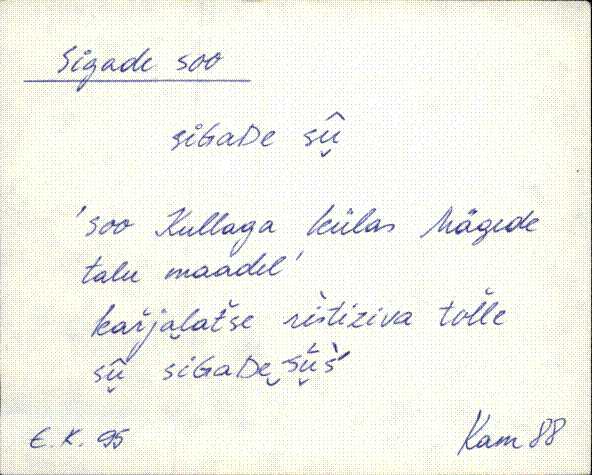 Sigade soo
siGaDe sṷ̂
'soo Kullaga külas Mägede
talu maadel'
kařjal̬at̆se ristiziva tol̆le
sṷ̂ siGaDe‿sŭ̬š
E. K. 95
Kam 88